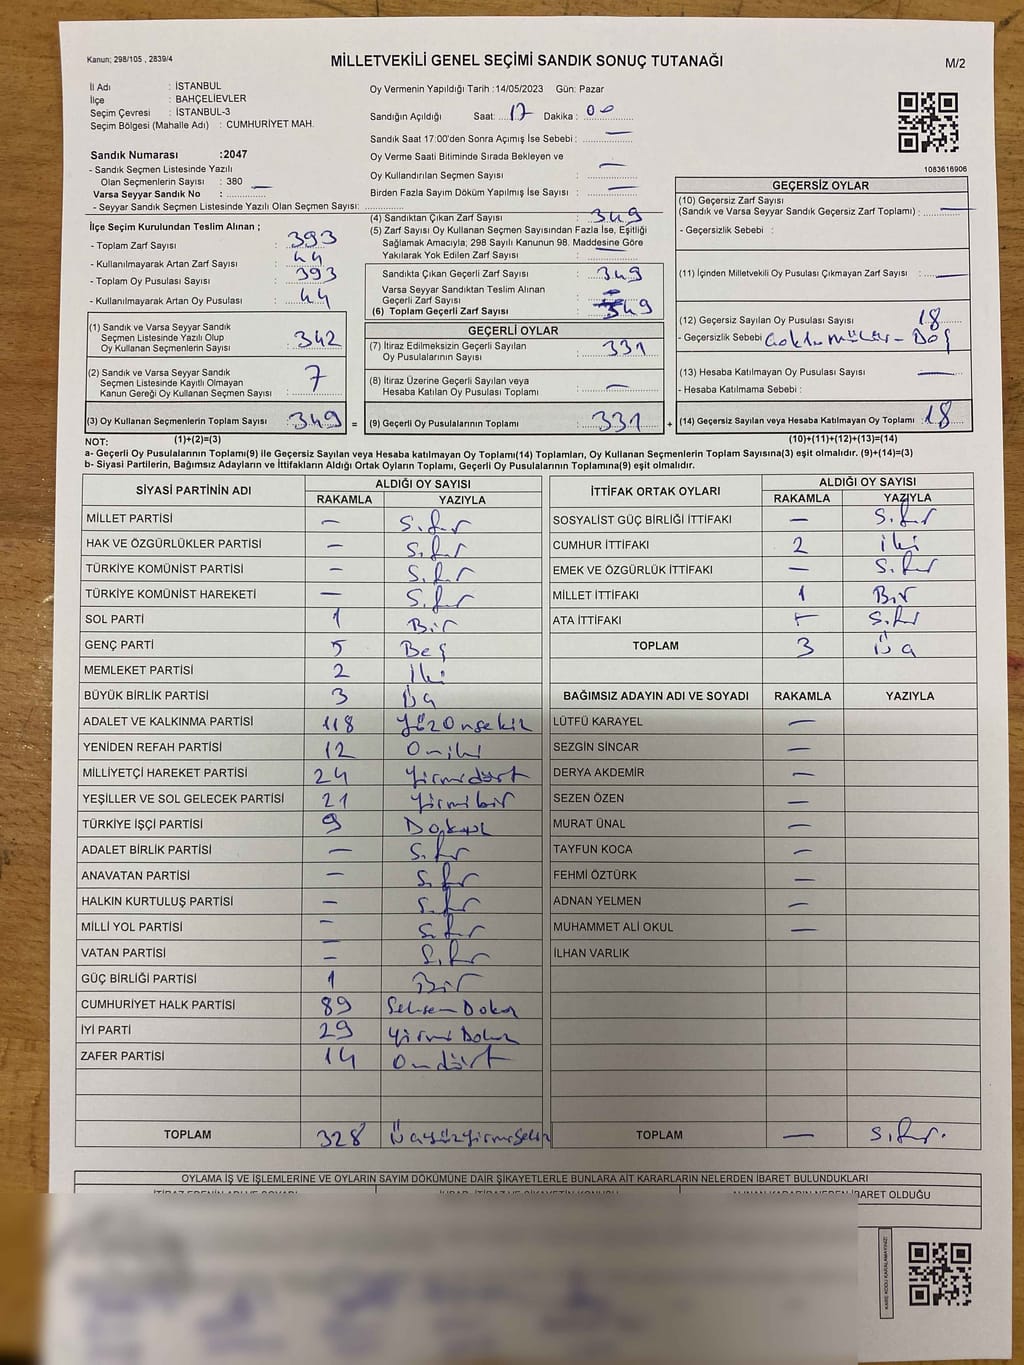 Kanun; 298/105 , 2839/4
MİLLETVEKİLİ GENEL SEÇİMİ SANDIK SONUÇ TUTANAĞI
M/2
İl Adı : İSTANBUL
İlçe : BAHÇELİEVLER
Seçim Çevresi : İSTANBUL-3
Seçim Bölgesi (Mahalle Adı) : CUMHURİYET MAH.
Sandık Numarası :2047
- Sandık Seçmen Listesinde Yazılı
Olan Seçmenlerin Sayısı : 380 —
Varsa Seyyar Sandık No :
- Seyyar Sandık Seçmen Listesinde Yazılı Olan Seçmen Sayısı:
Oy Vermenin Yapıldığı Tarih :14/05/2023 Gün: Pazar
Sandığın Açıldığı Saat: 17 Dakika : 00
Sandık Saat 17:00'den Sonra Açımış İse Sebebi : —
Oy Verme Saati Bitiminde Sırada Bekleyen ve
Oy Kullandırılan Seçmen Sayısı : —
Birden Fazla Sayım Döküm Yapılmış İse Sayısı : —
1083616906
İlçe Seçim Kurulundan Teslim Alınan ;
- Toplam Zarf Sayısı : 393
- Kullanılmayarak Artan Zarf Sayısı : 44
- Toplam Oy Pusulası Sayısı : 393
- Kullanılmayarak Artan Oy Pusulası : 44
(1) Sandık ve Varsa Seyyar Sandık
Seçmen Listesinde Yazılı Olup
Oy Kullanan Seçmenlerin Sayısı : 342
(2) Sandık ve Varsa Seyyar Sandık
Seçmen Listesinde Kayıtlı Olmayan
Kanun Gereği Oy Kullanan Seçmen Sayısı : 7
(3) Oy Kullanan Seçmenlerin Toplam Sayısı : 349 =
(4) Sandıktan Çıkan Zarf Sayısı : 349
(5) Zarf Sayısı Oy Kullanan Seçmen Sayısından Fazla İse, Eşitliği
Sağlamak Amacıyla; 298 Sayılı Kanunun 98. Maddesine Göre
Yakılarak Yok Edilen Zarf Sayısı : —
Sandıkta Çıkan Geçerli Zarf Sayısı : 349
Varsa Seyyar Sandıktan Teslim Alınan
Geçerli Zarf Sayısı : —
(6) Toplam Geçerli Zarf Sayısı : 349
GEÇERLİ OYLAR
(7) İtiraz Edilmeksizin Geçerli Sayılan
Oy Pusulalarının Sayısı : 331
(8) İtiraz Üzerine Geçerli Sayılan veya
Hesaba Katılan Oy Pusulası Toplamı : —
(9) Geçerli Oy Pusulalarının Toplamı : 331 +
GEÇERSİZ OYLAR
(10) Geçersiz Zarf Sayısı
(Sandık ve Varsa Seyyar Sandık Geçersiz Zarf Toplamı) : —
- Geçersizlik Sebebi :
(11) İçinden Milletvekili Oy Pusulası Çıkmayan Zarf Sayısı : —
(12) Geçersiz Sayılan Oy Pusulası Sayısı : 18
- Geçersizlik Sebebi - Boş
(13) Hesaba Katılmayan Oy Pusulası Sayısı : —
- Hesaba Katılmama Sebebi :
(14) Geçersiz Sayılan veya Hesaba Katılmayan Oy Toplamı : 18
NOT: (1)+(2)=(3) (10)+(11)+(12)+(13)=(14)
a- Geçerli Oy Pusulalarının Toplamı(9) ile Geçersiz Sayılan veya Hesaba Katılmayan Oy Toplamı(14) Toplamları, Oy Kullanan Seçmenlerin Toplam Sayısına(3) eşit olmalıdır. (9)+(14)=(3)
b- Siyasi Partilerin, Bağımsız Adayların ve İttifakların Aldığı Ortak Oyların Toplamı, Geçerli Oy Pusulalarının Toplamına(9) eşit olmalıdır.
SİYASİ PARTİNİN ADI ALDIĞI OY SAYISI
RAKAMLA YAZIYLA
MİLLET PARTİSİ — Sıfır
HAK VE ÖZGÜRLÜKLER PARTİSİ — Sıfır
TÜRKİYE KOMÜNİST PARTİSİ — Sıfır
TÜRKİYE KOMÜNİST HAREKETİ — Sıfır
SOL PARTİ 1 Bir
GENÇ PARTİ 5 Beş
MEMLEKET PARTİSİ 2 İki
BÜYÜK BİRLİK PARTİSİ 3 Üç
ADALET VE KALKINMA PARTİSİ 118 YüzOnsekiz
YENİDEN REFAH PARTİSİ 12 Oniki
MİLLİYETÇİ HAREKET PARTİSİ 24 Yirmidört
YEŞİLLER VE SOL GELECEK PARTİSİ 21 Yirmibir
TÜRKİYE İŞÇİ PARTİSİ 9 Dokuz
ADALET BİRLİK PARTİSİ — Sıfır
ANAVATAN PARTİSİ — Sıfır
HALKIN KURTULUŞ PARTİSİ — Sıfır
MİLLİ YOL PARTİSİ — Sıfır
VATAN PARTİSİ — Sıfır
GÜÇ BİRLİĞİ PARTİSİ 1 Bir
CUMHURİYET HALK PARTİSİ 89 Seksen Dokuz
İYİ PARTİ 29 Yirmi Dokuz
ZAFER PARTİSİ 14 Ondört
TOPLAM 328 ÜçyüzyirmiSekiz
İTTİFAK ORTAK OYLARI ALDIĞI OY SAYISI
RAKAMLA YAZIYLA
SOSYALİST GÜÇ BİRLİĞİ İTTİFAKI — Sıfır
CUMHUR İTTİFAKI 2 İki
EMEK VE ÖZGÜRLÜK İTTİFAKI — Sıfır
MİLLET İTTİFAKI 1 Bir
ATA İTTİFAKI — Sıfır
TOPLAM 3 Üç
BAĞIMSIZ ADAYIN ADI VE SOYADI RAKAMLA YAZIYLA
LÜTFÜ KARAYEL —
SEZGİN SİNCAR —
DERYA AKDEMİR —
SEZEN ÖZEN —
MURAT ÜNAL —
TAYFUN KOCA —
FEHMİ ÖZTÜRK —
ADNAN YELMEN —
MUHAMMET ALİ OKUL —
İLHAN VARLIK
TOPLAM — Sıfır.
OYLAMA İŞ VE İŞLEMLERİNE VE OYLARIN SAYIM DÖKÜMÜNE DAİR ŞİKAYETLERLE BUNLARA AİT KARARLARIN NELERDEN İBARET BULUNDUKLARI
İTİRAZ EDENİN ADI VE SOYADI İHBAR, İTİRAZ VE ŞİKAYETİN KONUSU ALINAN KARARIN NEDEN İBARET OLDUĞU
KARE KODU KARALAMAYINIZ!